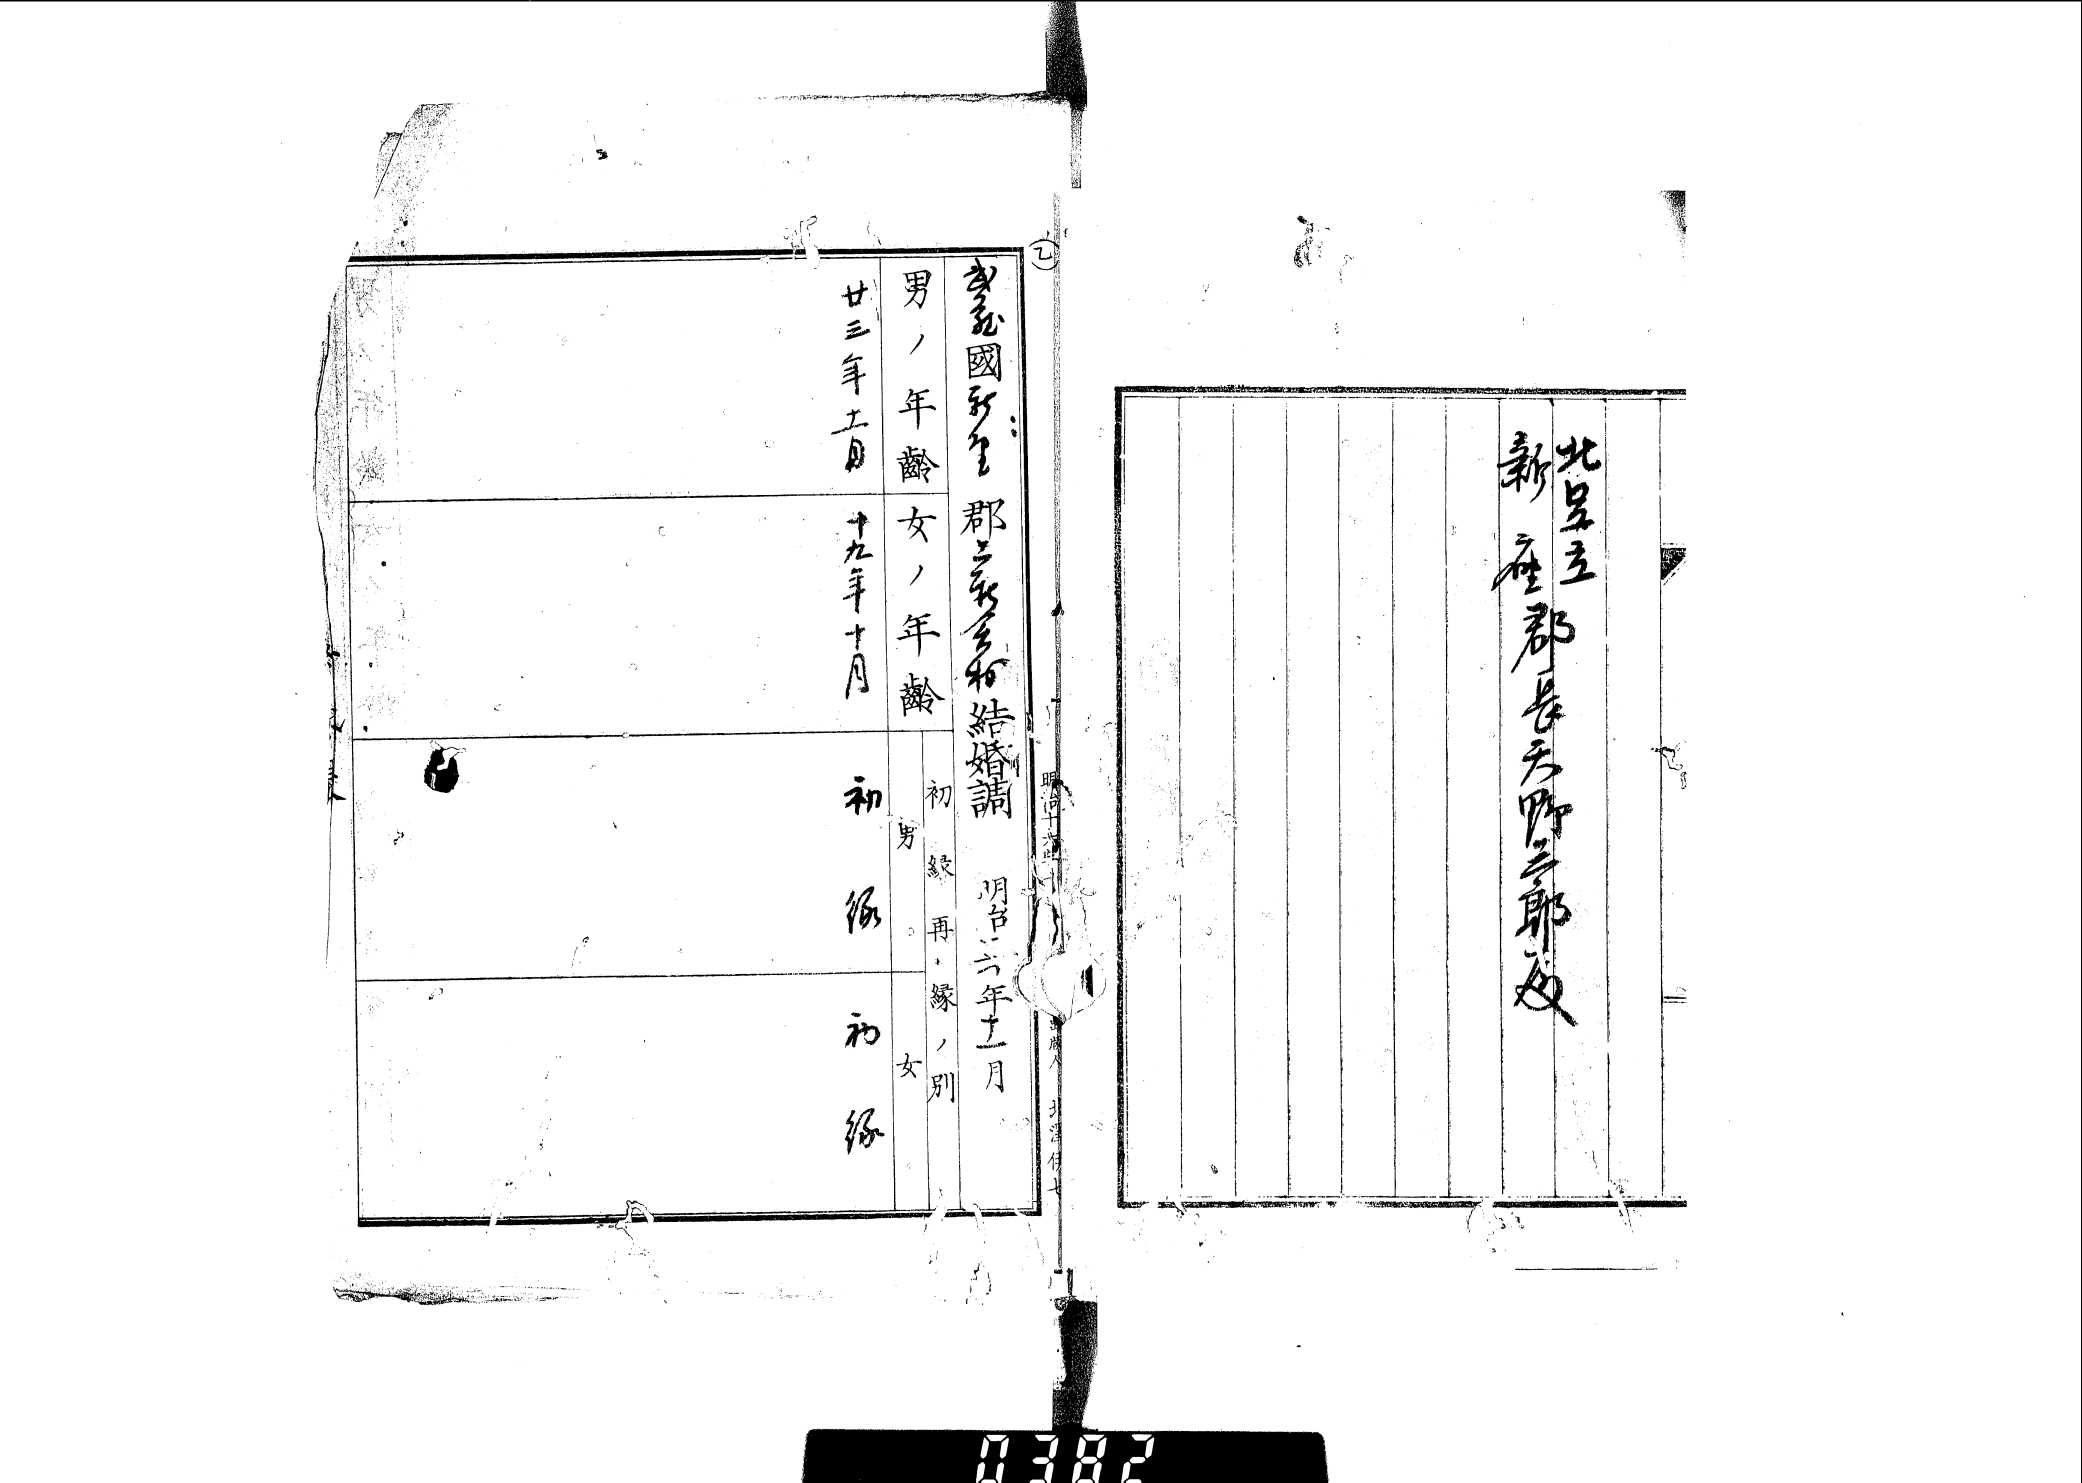 北足立
新座郡長天野三郎殿
乙
武蔵國新座郡上新倉村結婚調 明治十六年十一月
男ノ年齢
女ノ年齢
初縁再縁ノ別
男
女
廿三年十一月
十九年十月
初縁
初縁
0382